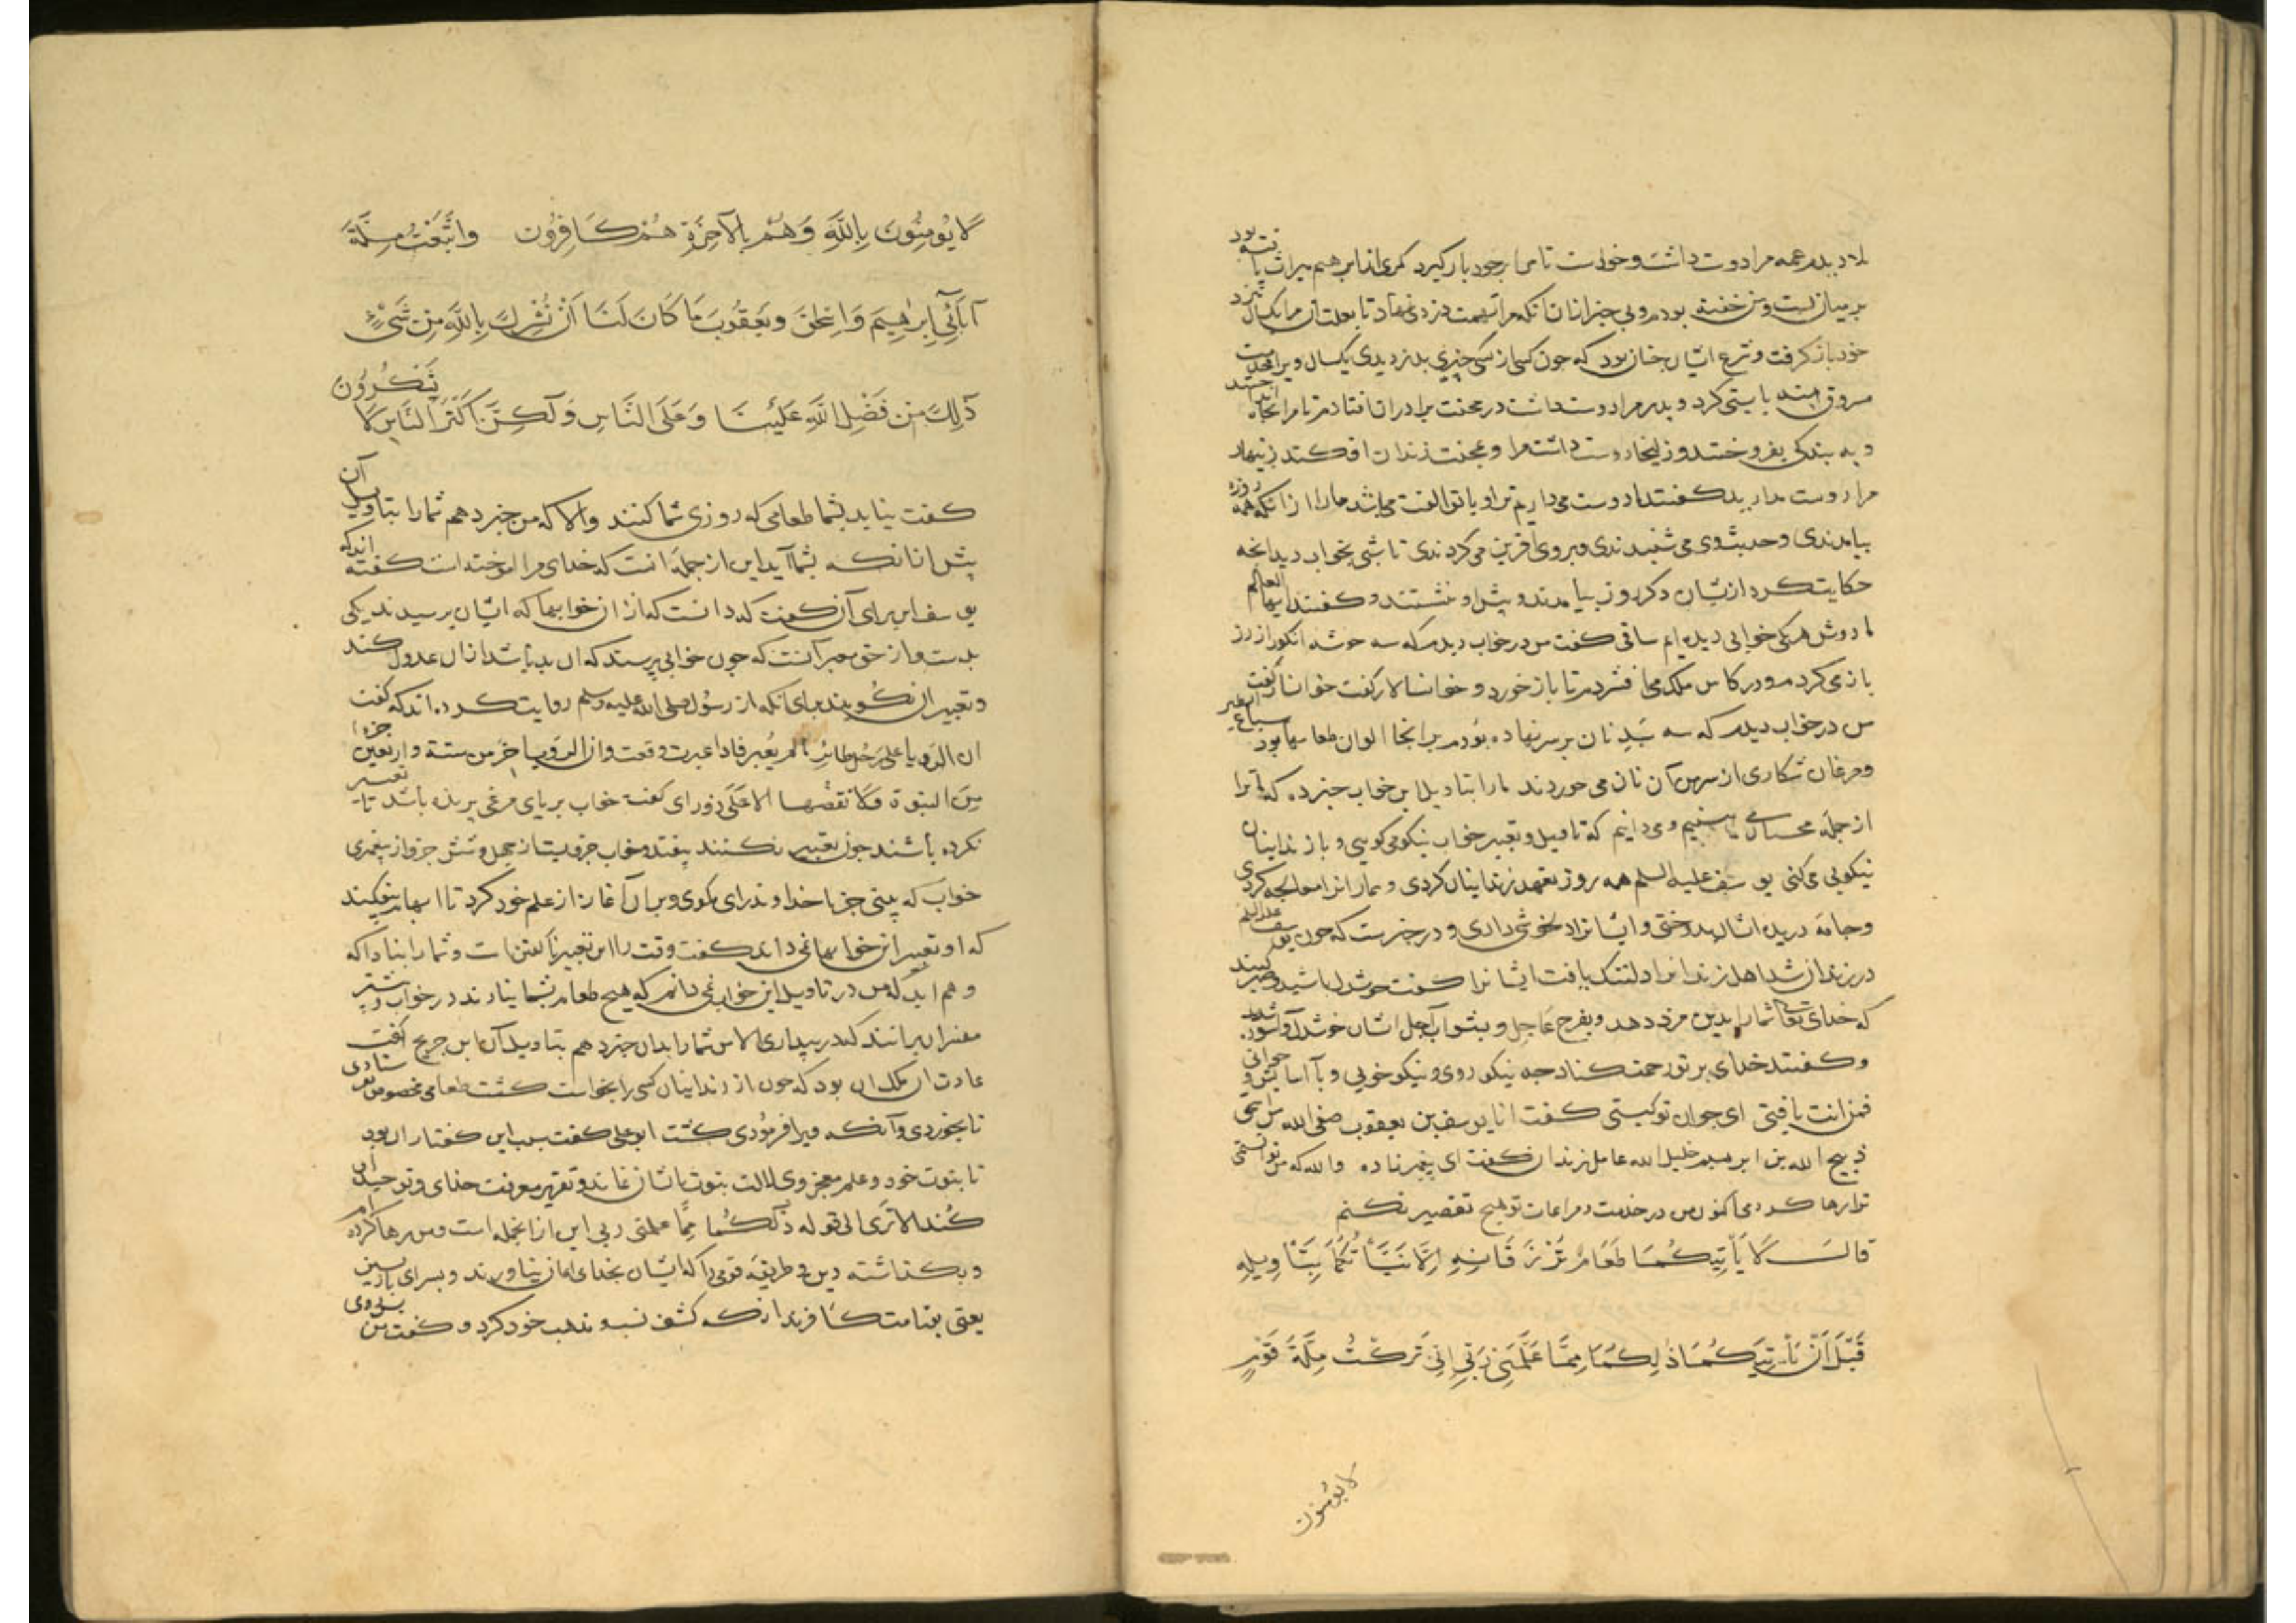 بلا دیدم عمه مرا دوست داشت و خواست تا مرا بر خود باز گیرد کمری از ابرهیم میراث یافته بود
بر میان من بست و من خفته بودم و بی خبر از آن آنکه مرا تهمت دزدی نهاد تا بعلت آن مرا یکسال نزد
خود باز گرفت و شرع ایشان چنان بود که چون کسی از کسی چیزی بدزدیدی یکسال ویرا خدمت
مسروق منه بایستی کرد و پدر مرا دوست داشت در محنت برادران افتادم تا مرا بچاه انداختند
و به بندگی بفروختند و زلیخا دوست داشت مرا و بمحنت زندان افکند زنهار
مرا دوست مدارید گفتند ما دوست می داریم ترا و با تو الفت می باشد ما را از آنکه همه روزه
بیامدندی و حدیث وی می شنیدندی و بر وی آفرین می کردندی تا شبی بخواب دید آنچه
حکایت کرد از ایشان دگر روز بیامدند و پیش او نشستند و گفتند ایها العالم
ما دوش هر یکی خوابی دیده ایم ساقی گفت من در خواب دیدم که سه خوشه انگور از رز
باز می کردم و در کاس ملک می افشردم تا باز خورد و خوانسالار گفت
من در خواب دیدم که سه سبد نان بر سر نهاده بودم بر آنجا الوان طعامها بود سباع
و مرغان شکاری از سر من آن نان می خوردند ما را بتاویل این خواب خبر ده که ما ترا
از جمله محسنان می بینیم و می دانیم که تاویل و تعبیر خواب نیکو می گویی و با زندانیان
نیکویی می کنی یوسف علیه السلم همه روز تعهد زندانیان کردی و بیمارانرا معالجه کردی
و جامه دریده ایشان بدوختی و ایشانرا دلخوشی دادی و در خبر است که چون یوسف علیه السلم
در زندان شد اهل زندانرا دلتنگ یافت ایشانرا گفت خوشدل باشید و صبر کنید
که خدای تعالی شما را بدین مزد دهد و بفرج عاجل و بثواب آجل ایشان خوشدل و آسوده شدند
و گفتند خدای بر تو رحمت کناد چه نیکو روی و نیکو خویی و با آسایش و جوانی
فمن انت یا فتی ای جوان تو کیستی گفت انا یوسف بن یعقوب صفی الله بن اسحق
ذبیح الله بن ابرهیم خلیل الله عامل زندان گفت ای پیغمبر زاده والله که من توانستمی
ترا رها کردمی اکنون من در خدمت و مراعات تو هیچ تقصیر نکنم
قَالَ لَا یَأْتِیکُمَا طَعَامٌ تُرْزَقَانِهِ اِلَّا نَبَّأْتُکُمَا بِتَأْوِیلِهِ
قَبْلَ أَنْ یَأْتِیَکُمَا ذٰلِکُمَا مِمَّا عَلَّمَنِی رَبِّی اِنِّی تَرَکْتُ مِلَّةَ قَوْمٍ
لا یؤمنون
لَا یُؤمِنُونَ بِاللَّهِ وَهُمْ بِالْآخِرَةِ هُمْ کَافِرُونَ وَاتَّبَعْتُ مِلَّةَ
آبَائِی إِبْرٰهِیمَ وَإِسْحٰقَ وَیَعْقُوبَ مَا کَانَ لَنَا أَنْ نُشْرِکَ بِاللَّهِ مِنْ شَیْءٍ
ذٰلِکَ مِنْ فَضْلِ اللَّهِ عَلَیْنَا وَعَلَی النَّاسِ وَلٰکِنَّ أَکْثَرَ النَّاسِ لَا یَشْکُرُونَ
گفت نیاید بشما طعامی که روزی شما کنند و الا که من خبر دهم شما را بتاویل آن
پیش از آنکه بشما آید این از جمله آنست که خدای مرا آموخته است گفته اند که
یوسف این برای آن گفت که دانست که از آن خوابها که ایشان پرسیدند یکی
بدست و از حق معبر آنست که چون خوابی پرسند که آن بد باشد از آن عدول کند
و تعبیر آن نگویند برای آنکه از رسول صلی الله علیه وسلم روایت کرده اند که گفت
ان الرویا علی رجل طائر ما لم یعبر فاذا عبرت وقعت و ان الرویا جزء من ستة و اربعین جزءا
من النبوة و لا تقصها الا علی ذی رای گفت خواب بر پای مرغی پرنده باشد تا تعبیر
نکرده باشند چون تعبیر بکنند بیفتد و خواب جزویست از چهل و شش جزو از پیغمبری
خواب که بینی جز با خداوند رای مگوی و بر آن آغاز از علم خود کرد تا ابهام نیفکند
که او تعبیر این خوابها نمی داند گفت وقت را این تعبیر ناگفتن است و شما را بنادا که
و هم آید که من در تاویل این خواب نمی دانم که هیچ طعام بشما نیارند در خواب و بیشتر
مفسران برانند که در بیداری الا من شما را بدان خبر دهم بتاویل آن ابن جریج گفت
عادت آن ملک آن بود که چون از زندانیان کسی را بخواست کشت طعامی مخصوص بفرستادی
تا بخوردی و آنگه ویرا فرمودی کشت ابو علی گفت سبب این گفتار آن بود
تا نبوت خود و علم معجز وی دلالت نبوت با ایشان نماند و تقریر معرفت خدای و توحید آن
کند الا تری الی قوله ذلکما مما علمنی ربی این از آنجمله است و من رها کرده ام
و بگذاشته دین و طریقه قومی را که ایشان بخدای ایمان نیاورند و بسرای بازپسین
یعنی بقیامت کافرند آنگه کشف نسب و مذهب خود کرد و گفت من پس روی